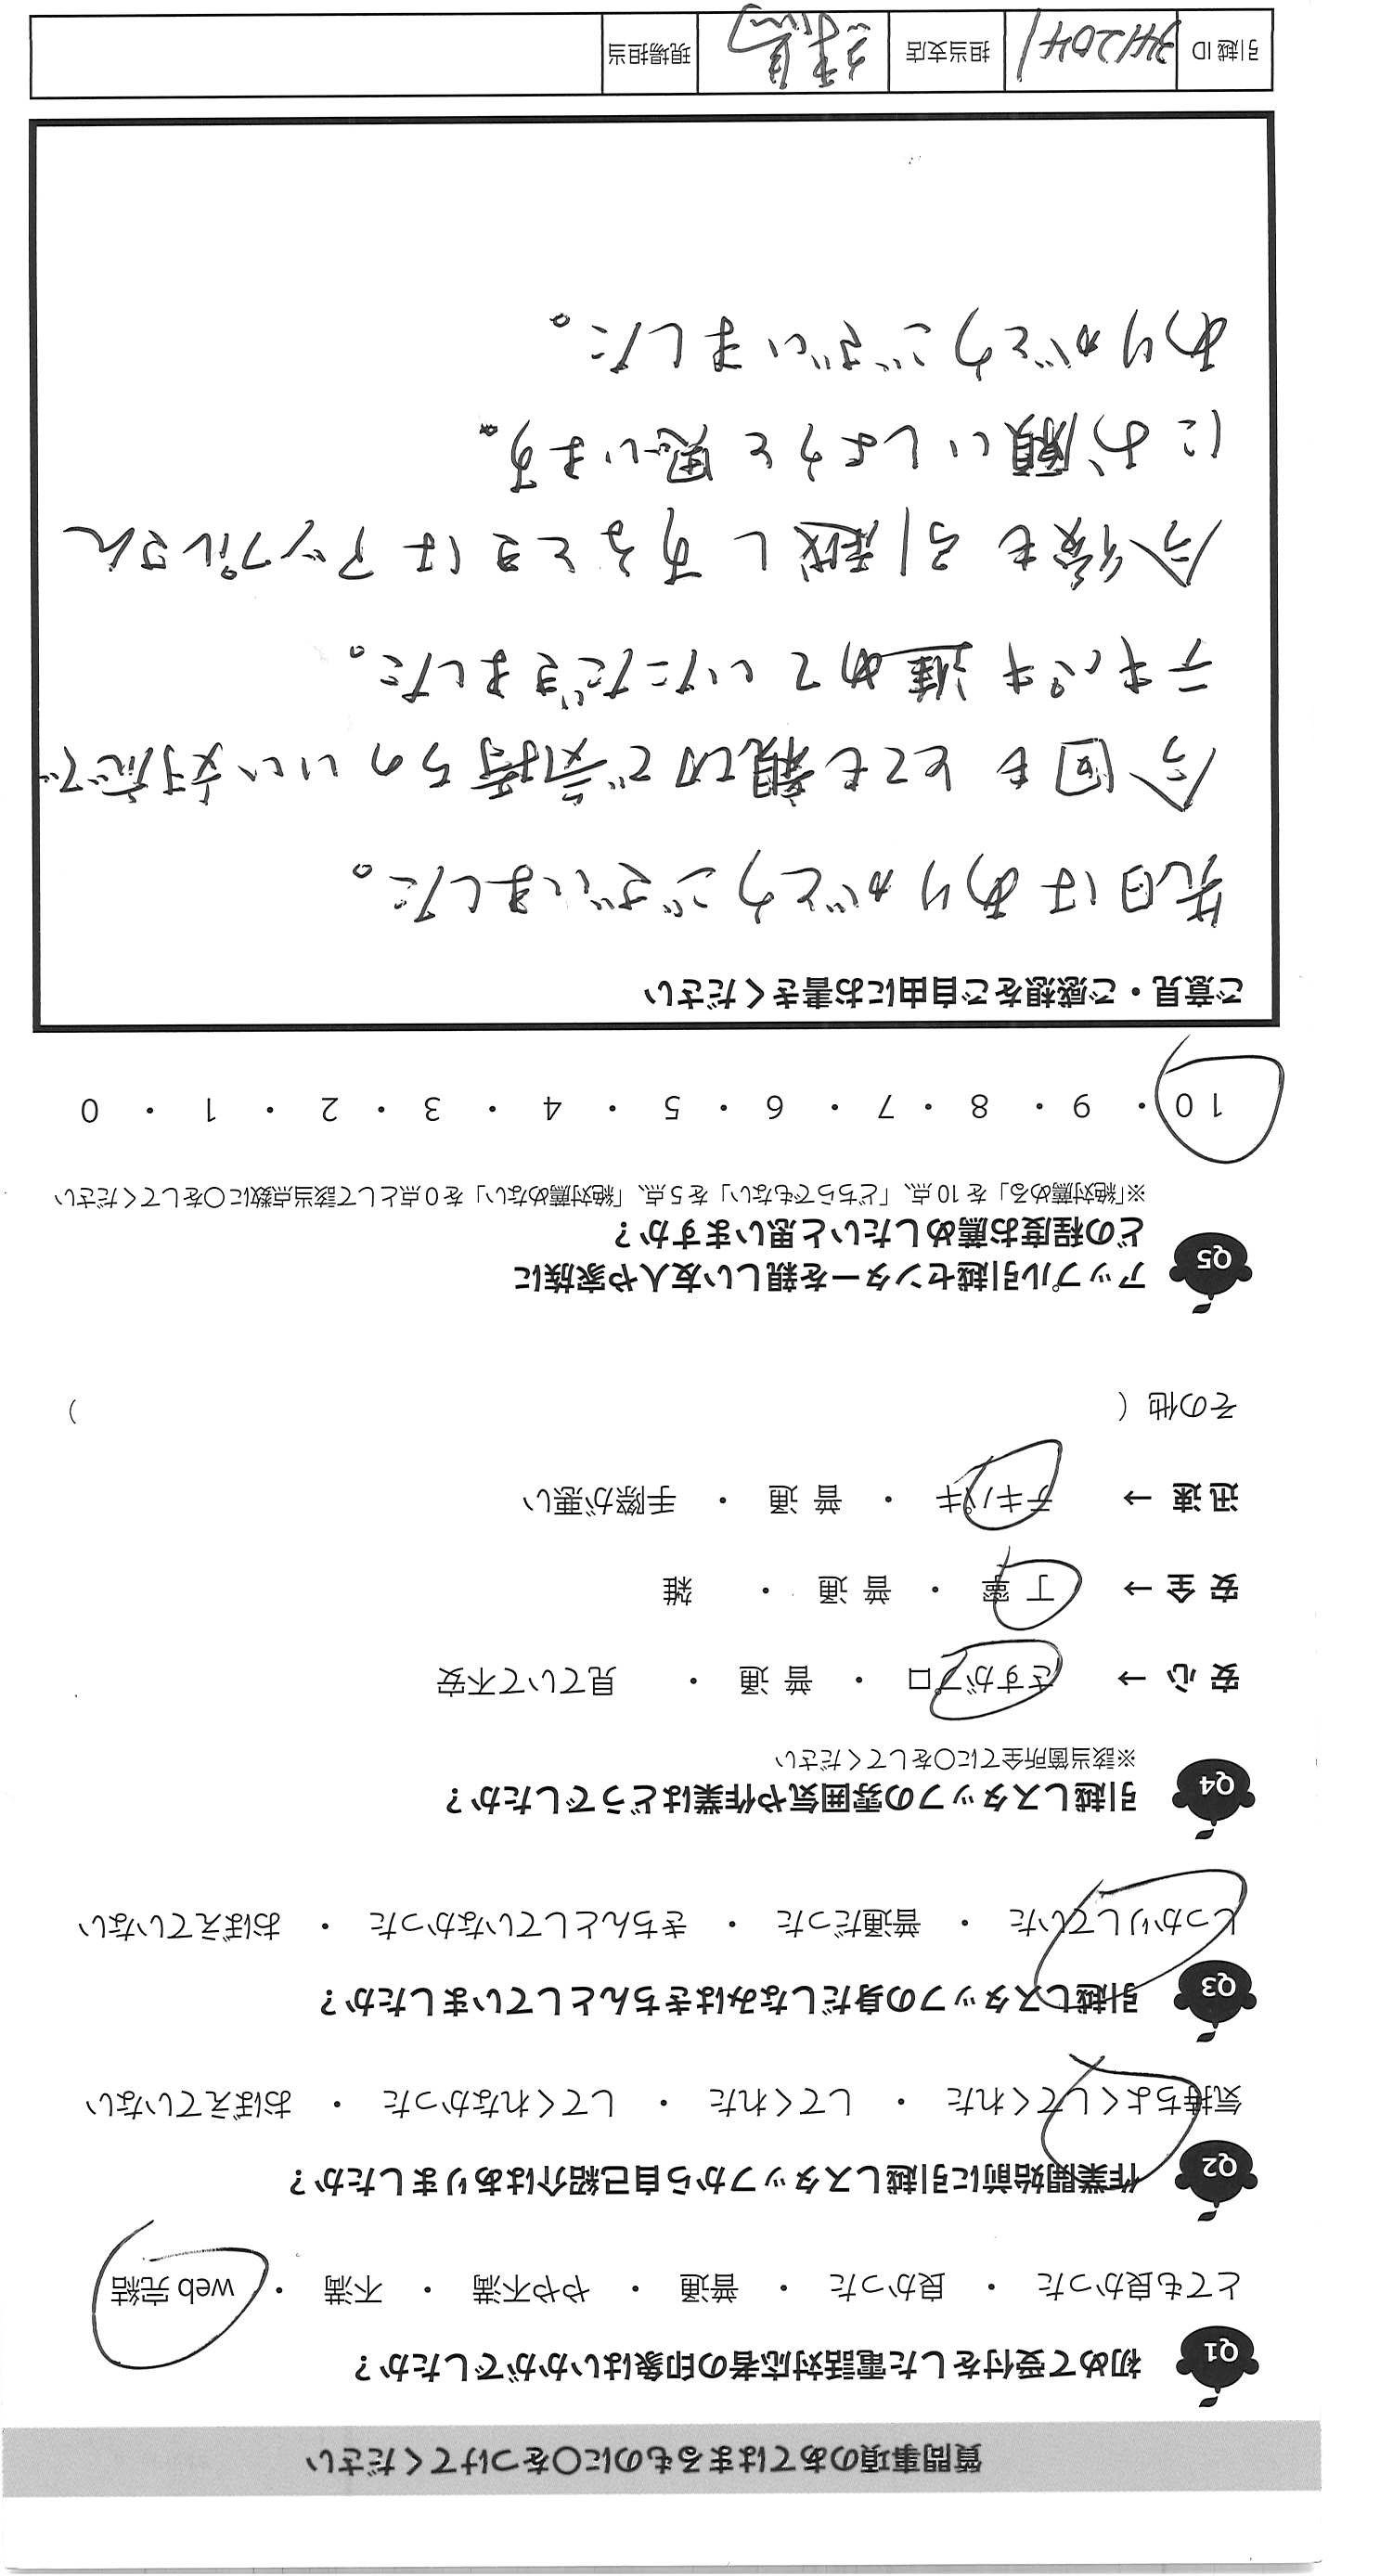 質問事項のあてはまるものに○をつけてください
Q1 初めて受付をした電話対応者の印象はいかがでしたか？
とても良かった ・ 良かった ・ 普通 ・ やや不満 ・ 不満 ・ web 完結
Q2 作業開始前に引越しスタッフから自己紹介はありましたか？
気持ちよくしてくれた ・ してくれた ・ してくれなかった ・ おぼえていない
Q3 引越しスタッフの身だしなみはきちんとしていましたか？
しっかりしていた ・ 普通だった ・ きちんとしていなかった ・ おぼえていない
Q4 引越しスタッフの雰囲気や作業はどうでしたか？
※該当箇所全てに○をしてください
安 心 → さすがプロ ・ 普 通 ・ 見ていて不安
安 全 → 丁 寧 ・ 普 通 ・ 雑
迅 速 → テキパキ ・ 普 通 ・ 手際が悪い
その他（ ）
Q5 アップル引越センターを親しい友人や家族に
どの程度お薦めしたいと思いますか？
※「絶対薦める」を 10 点、「どちらでもない」を 5 点、「絶対薦めない」を 0 点として該当点数に○をしてください
10 ・ 9 ・ 8 ・ 7 ・ 6 ・ 5 ・ 4 ・ 3 ・ 2 ・ 1 ・ 0
ご意見・ご感想をご自由にお書きください
先日はありがとうございました。
今回もとても親切で気持ちのいい対応で
テキパキ進めていただきました。
今後も引越しするときはアップルさん
にお願いしようと思います。
ありがとうございました。
引越 ID 3412041 担当支店 練馬 現場担当